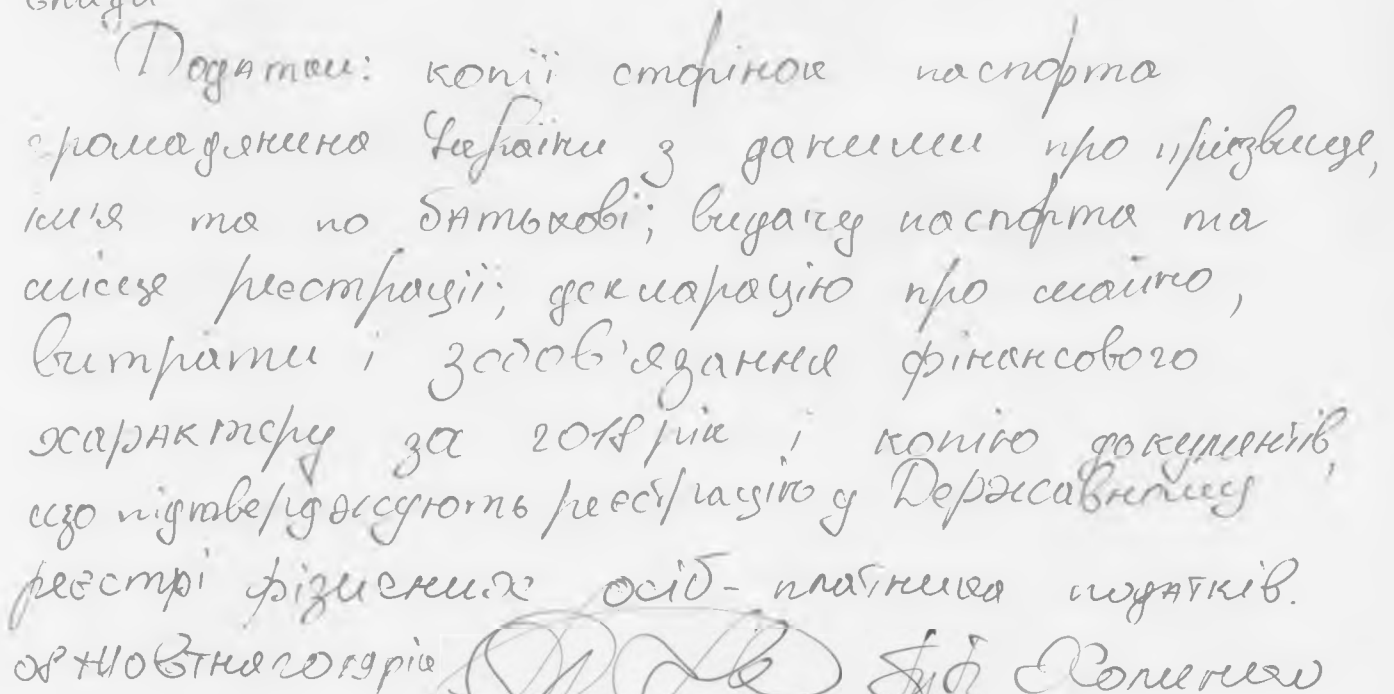 влади
Додатки: копії сторінок паспорта
громадянина України з даними про прізвище,
ім'я та по батькові; видачу паспорта та
місце реєстрації; декларацію про майно,
витрати і зобов'язання фінансового
характеру за 2018 рік і копію документів,
що підтверджують реєстрацію у Державному
реєстрі фізичних осіб - платника податків.
08 жовтня 2019 рік